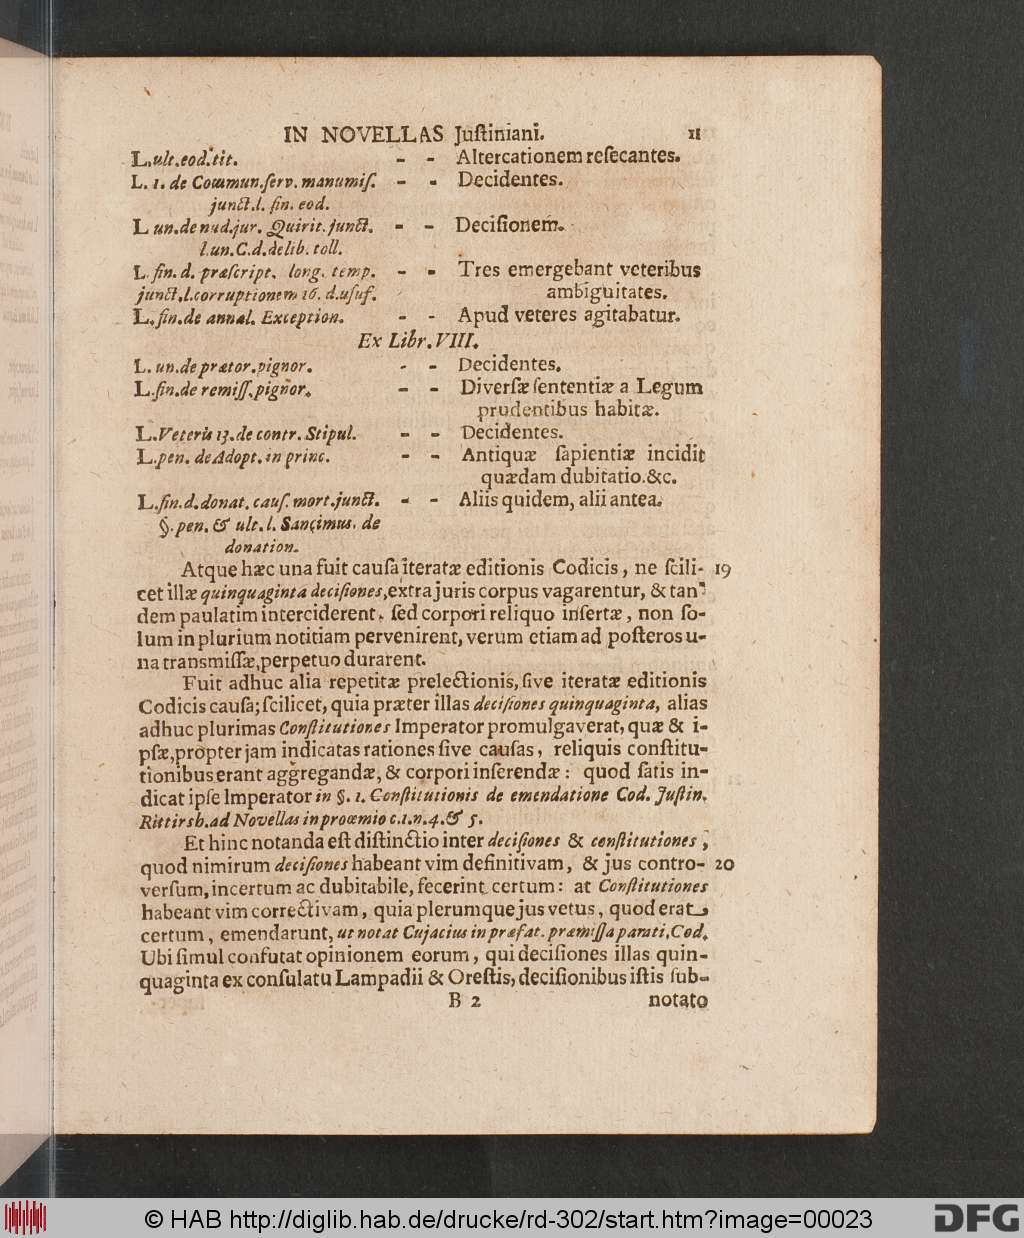 IN NOVELLAS Juſtiniani. 11
L. ult. eod. tit. - - Altercationem reſecantes.
L. 1. de Commun. ſerv. manumiſ. - - Decidentes.
junct. l. fin. eod.
L un. de nud. jur. Quirit. junct. - - Deciſionem.
l. un. C. d. dedib. toll.
L. fin. d. præſcript. long. temp. - - Tres emergebant veteribus
junct. l. corruptionem 16. d. uſuf. ambiguitates.
L. fin. de annal. Exception. - - Apud veteres agitabatur.
Ex Libr. VIII.
L. un. de prætor. pignor. - - Decidentes.
L. fin. de remiſſ. pignor. - - Diverſæ ſententiæ a Legum
prudentibus habitæ.
L. Veteris 13. de contr. Stipul. - - Decidentes.
L. pen. de Adopt. in princ. - - Antiquæ ſapientiæ incidit
quædam dubitatio. &c.
L. fin. d. donat. cauſ. mort. junct. - - Aliis quidem, alii antea.
§. pen. & ult. l. Sancimus. de
donation.
Atque hæc una fuit cauſa iteratæ editionis Codicis, ne ſcili- 19
cet illæ quinquaginta deciſiones, extra juris corpus vagarentur, & tan-
dem paulatim interciderent, ſed corpori reliquo inſertæ, non ſo-
lum in plurium notitiam pervenirent, verum etiam ad poſteros u-
na transmiſſæ, perpetuo durarent.
Fuit adhuc alia repetitæ prelectionis, ſive iteratæ editionis
Codicis cauſa; ſcilicet, quia præter illas deciſiones quinquaginta, alias
adhuc plurimas Conſtitutiones Imperator promulgaverat, quæ & i-
pſæ, propter jam indicatas rationes ſive cauſas, reliquis conſtitu-
tionibus erant aggregandæ, & corpori inſerendæ: quod ſatis in-
dicat ipſe Imperator in §. 1. Conſtitutionis de emendatione Cod. Juſtin.
Rittirsh. ad Novellas in proœmio c. 1. n. 4. & 5.
Et hinc notanda eſt diſtinctio inter deciſiones & conſtitutiones,
quod nimirum deciſiones habeant vim definitivam, & jus contro- 20
verſum, incertum ac dubitabile, fecerint certum: at Conſtitutiones
habeant vim correctivam, quia plerumque jus vetus, quod erat
certum, emendarunt, ut notat Cujacius in præfat. præmiſſa paratit. Cod.
Ubi ſimul confutat opinionem eorum, qui deciſiones illas quin-
quaginta ex conſulatu Lampadii & Oreſtis, deciſionibus iſtis ſub-
B 2 notato
© HAB http://diglib.hab.de/drucke/rd-302/start.htm?image=00023
DFG